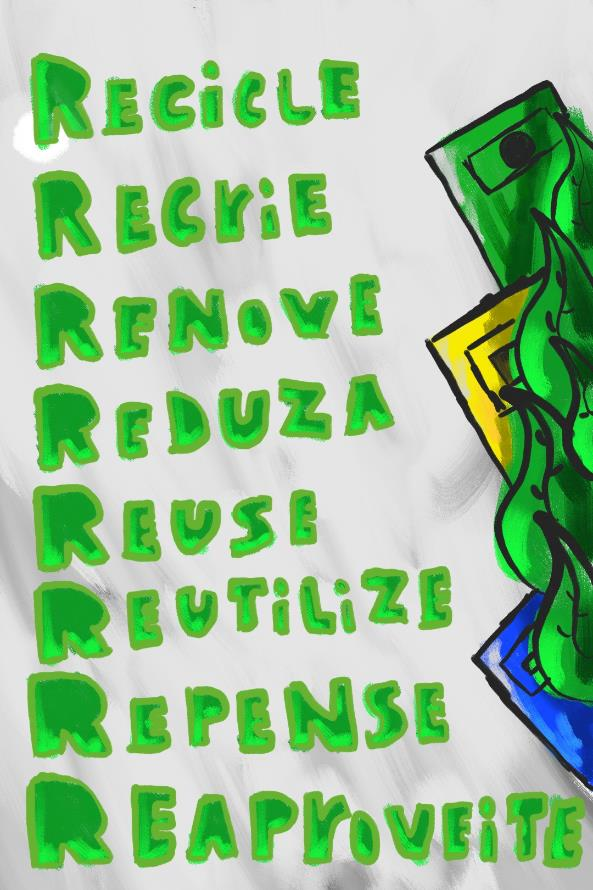 RECiCLE
RECriE
RENOVE
REDUZA
REUSE
REUTiLiZE
REPENSE
REAProVEiTE